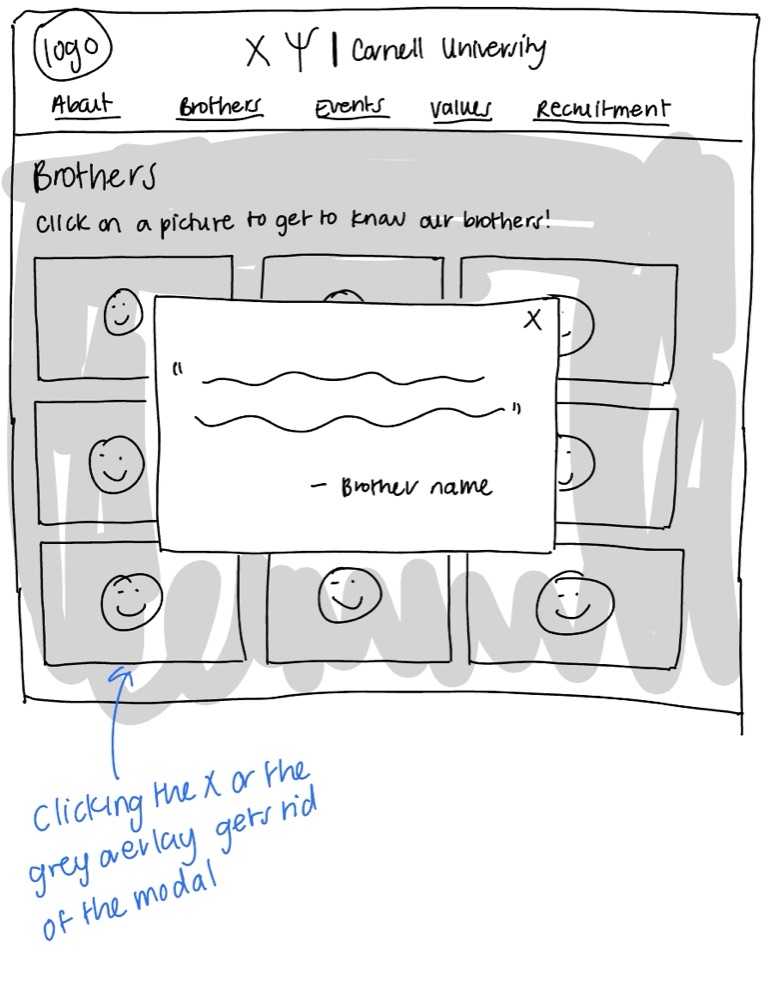 logo
X Ψ | Cornell University
About Brothers Events Values Recruitment
Brothers
Click on a picture to get to know our brothers!
X
"
"
- Brother name
Clicking the X or the
grey overlay gets rid
of the modal